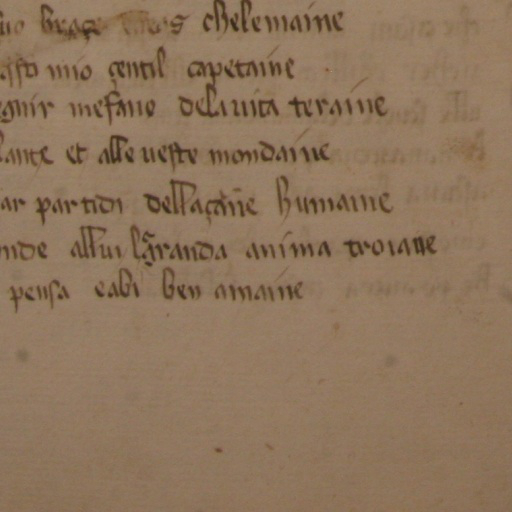 suo braçe chelemaine
assti mio çentil capetaine
egnir mefano dela vita teraine
lante et alle veste mondaine
ar partidi dell açane humaine
onde allui l granda anima troiane
pensa eabi ben amaine